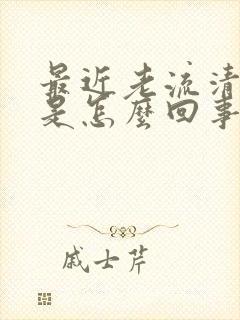 最近老流清
是怎麼回事
戚士芹